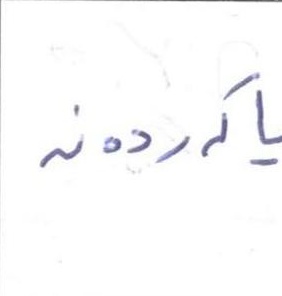 یاکەردەنە